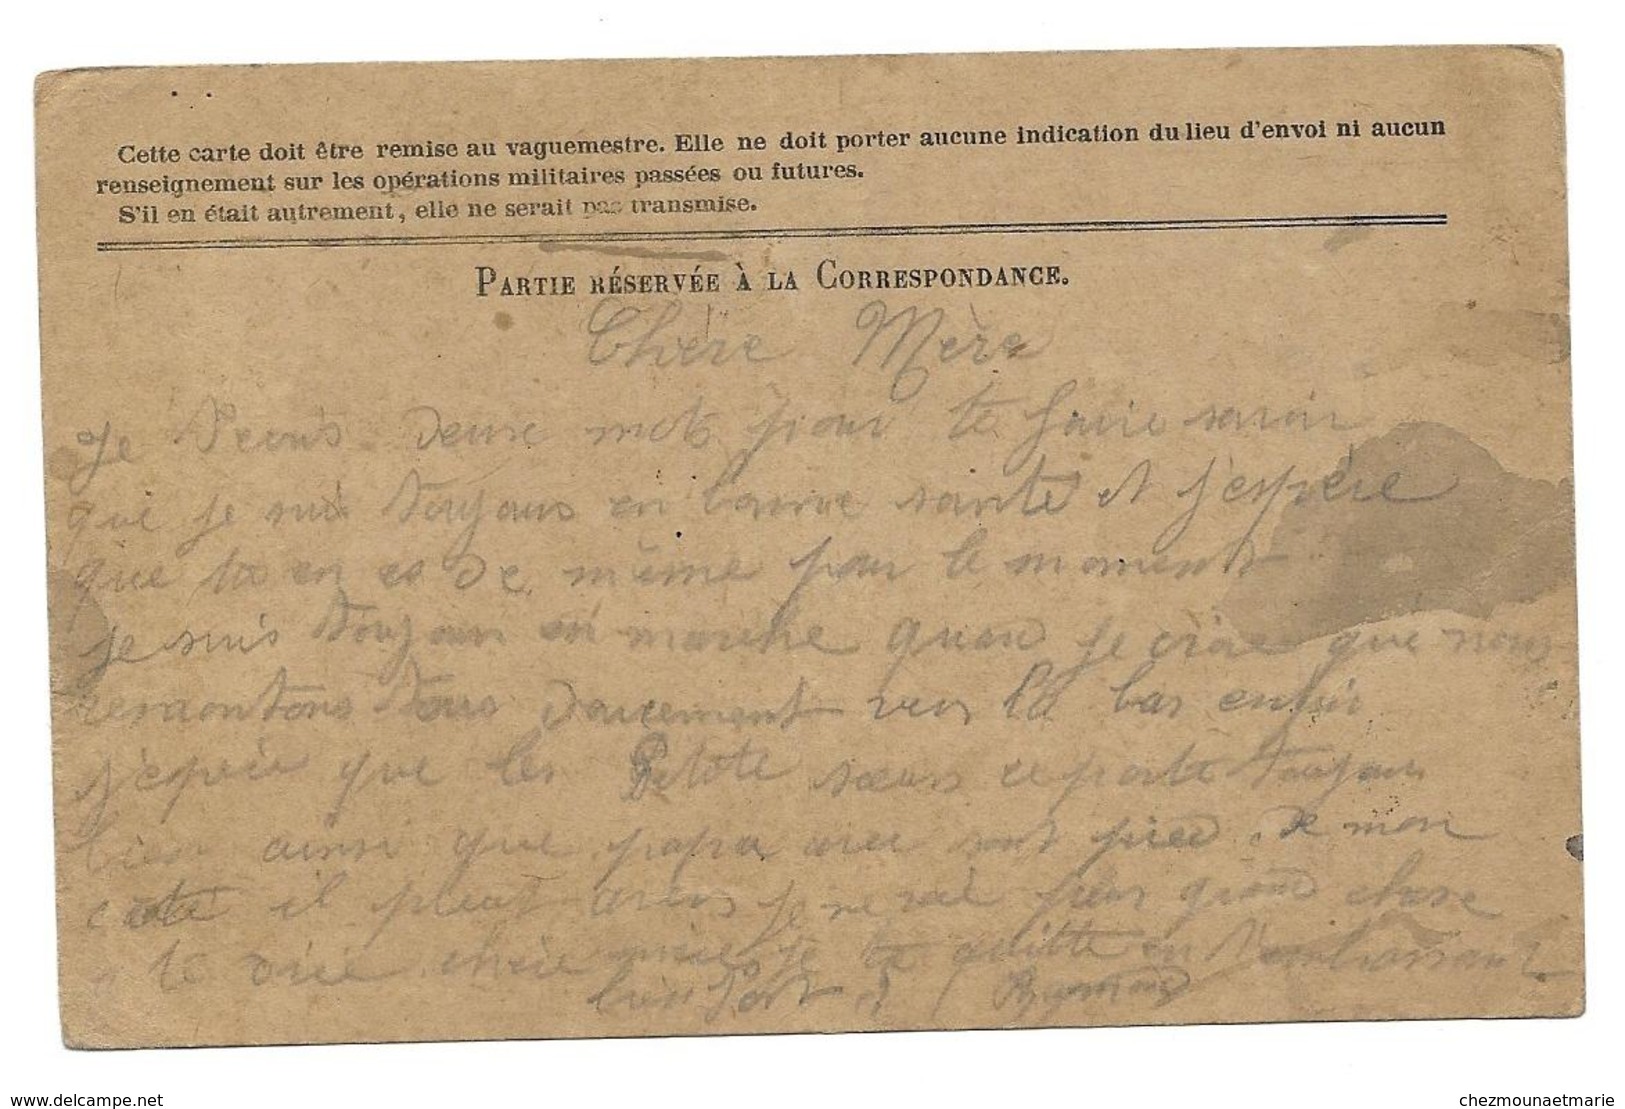 Cette carte doit être remise au vaguemestre. Elle ne doit porter aucune indication du lieu d'envoi ni aucun
renseignement sur les opérations militaires passées ou futures.
S'il en était autrement, elle ne serait pas transmise.
PARTIE RÉSERVÉE À LA CORRESPONDANCE.
Chère Mère
Je deux mots pour te faire savoir
que je suis toujours en bonne santé et j'espère
que tu en es de même pour le moment
je suis toujour en marche que nous
remontons tous doucement vers là bas enfin
j'espère que les petite sœurs ce porte toujours
bien ainsi que papa avec sont pied. De mon
côté il pleut je ne vai plus grand chose
a te dire chère mère je te quitte en t'embrassant
bien fort
www.delcampe.net
chezmounaetmarie